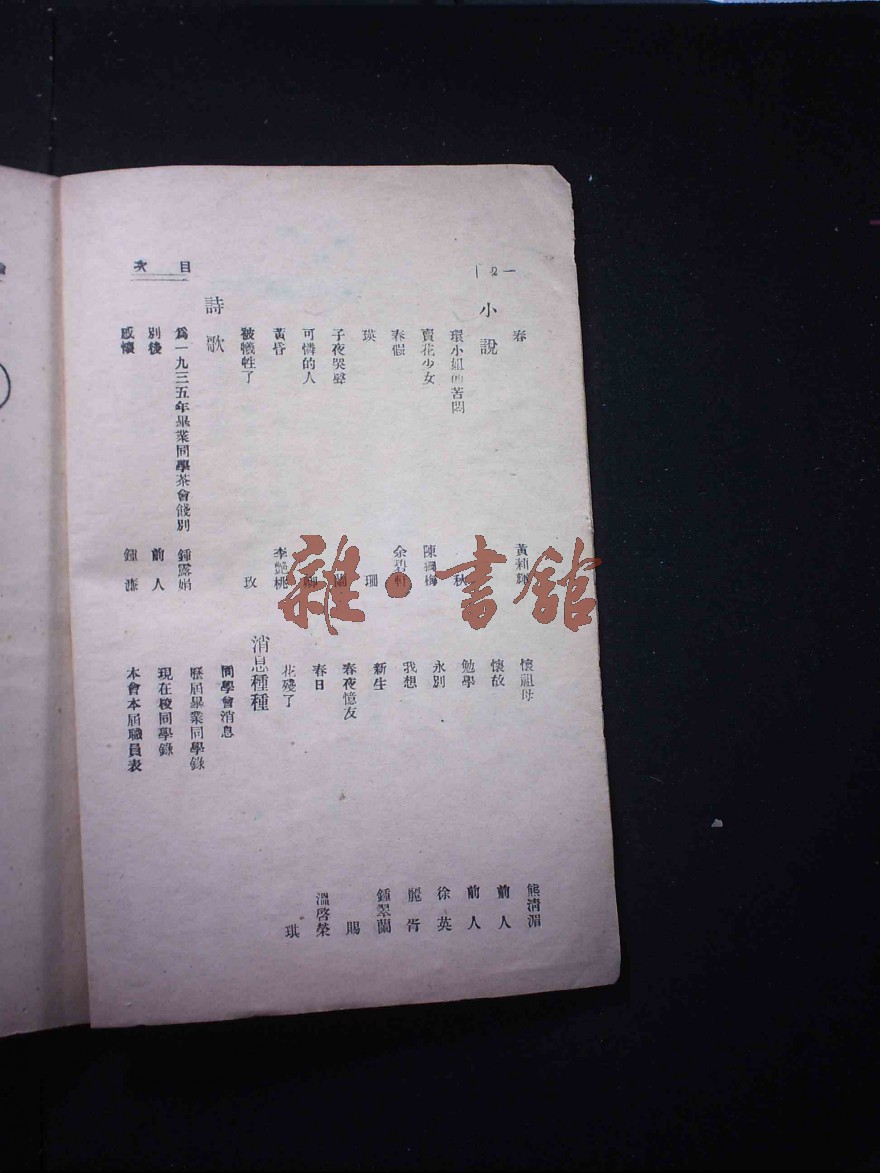 目次
一2一
春
黃莉
小說
環小姐的苦悶
秋
賣花少女
陳
春假
余碧軒
瑛
珊
子夜哭聲
蘭
可憐的人
黃昏
李艷桃
被犧牲了
玫
詩歌
爲一九三五年畢業同學茶會餞別
鍾露娟
別後
前人
感懷
鍾濂
懷祖母
熊清湄
懷故
前人
勉學
前人
永別
徐英
我想
麗胥
新生
鍾翠蘭
春夜憶友
賜
春日
溫啓榮
花殘了
琪
消息種種
同學會消息
歷屆畢業同學錄
現在校同學錄
本會本屆職員表
雜·書館